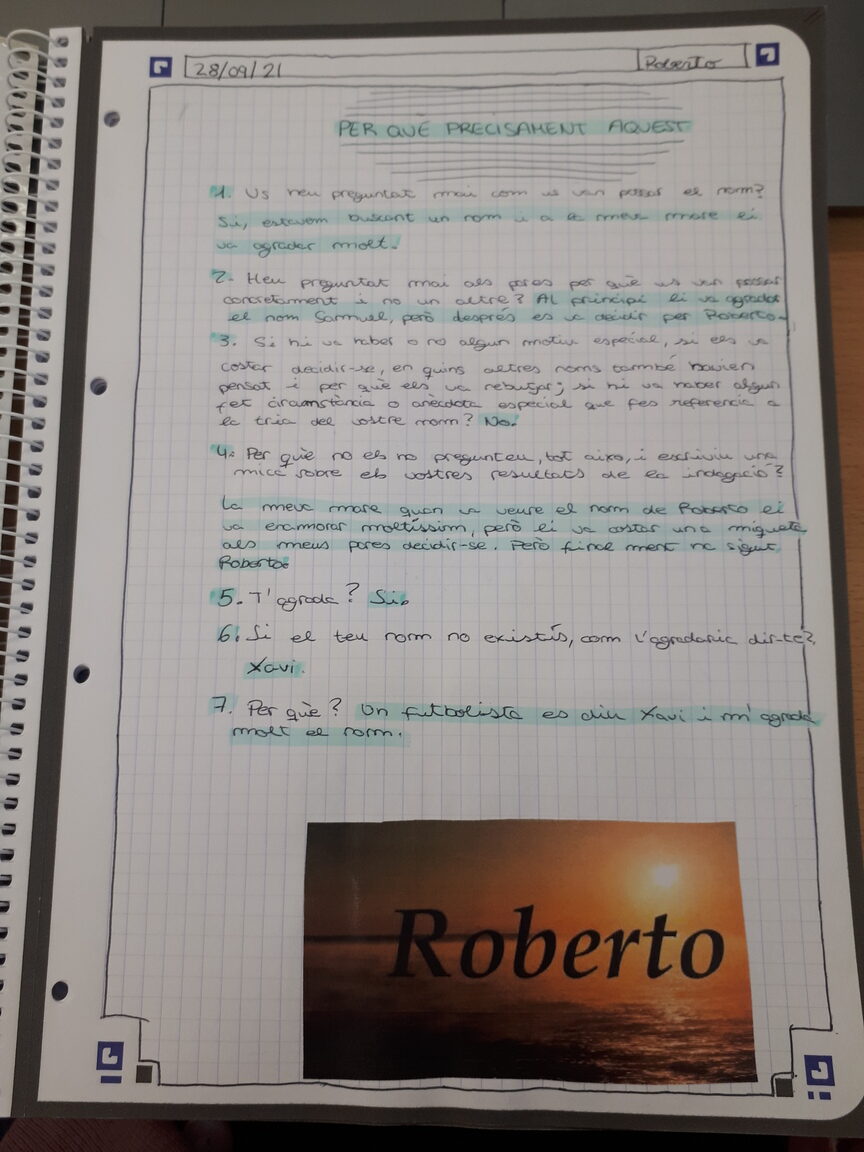 28/09/21
Roberto
PER QUÈ PRECISAMENT AQUEST
1. Us heu preguntat mai com us van posar el nom?
Si, estavem buscant un nom i a la meva mare li
va agradar molt.
2- Heu preguntat mai als pares per què us van posar
concretament i no un altre? Al principi li va agradar
el nom Samuel, però després es va decidir per Roberto.
3. Si hi va haber o no algun motiu especial, si els va
costar decidir-se, en quins altres noms també havien
pensat i per què els va rebutjar; si hi va haber algun
fet circumstància o anècdota especial que fes referencia a
la tria del vostre nom? No.
4. Per què no els ho pregunteu, tot aixo, i escriviu una
mica sobre els vostres resultats de la indagació?
La meva mare quan va veure el nom de Roberto li
va enamorar moltíssim, però li va costar una migueta
als meus pares decidir-se. Però final ment ha sigut
Roberto.
5. T'agrada? Si.
6. Si el teu nom no existís, com t'agradaria dir-te?
Xavi.
7. Per què? Un futbolista es diu Xavi i m'agrada
molt el nom.
Roberto